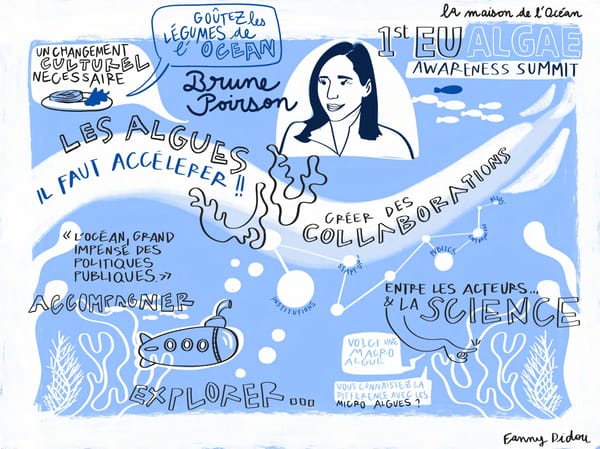 la maison de l'Océan
1st EU ALGAE
AWARENESS SUMMIT
GOÛTEZ les
LÉGUMES de
l'OCEAN
UN CHANGEMENT
CULTUREL
NÉCESSAIRE
Brune
Poirson
LES ALGUES
IL FAUT ACCÉLERER !!
CRÉER DES
COLLABORATIONS
« L'OCÉAN, GRAND
IMPENSÉ DES
POLITIQUES
PUBLIQUES. »
INSTITUTIONS
START-UP
PUBLICS
ENTRE LES ACTEURS...
& LA SCIENCE
ACCOMPAGNER
EXPLORER...
VOICI UNE
MACRO
ALGUE
VOUS CONNAISSEZ LA
DIFFÉRENCE AVEC LES
MICRO ALGUES ?
Fanny Didou